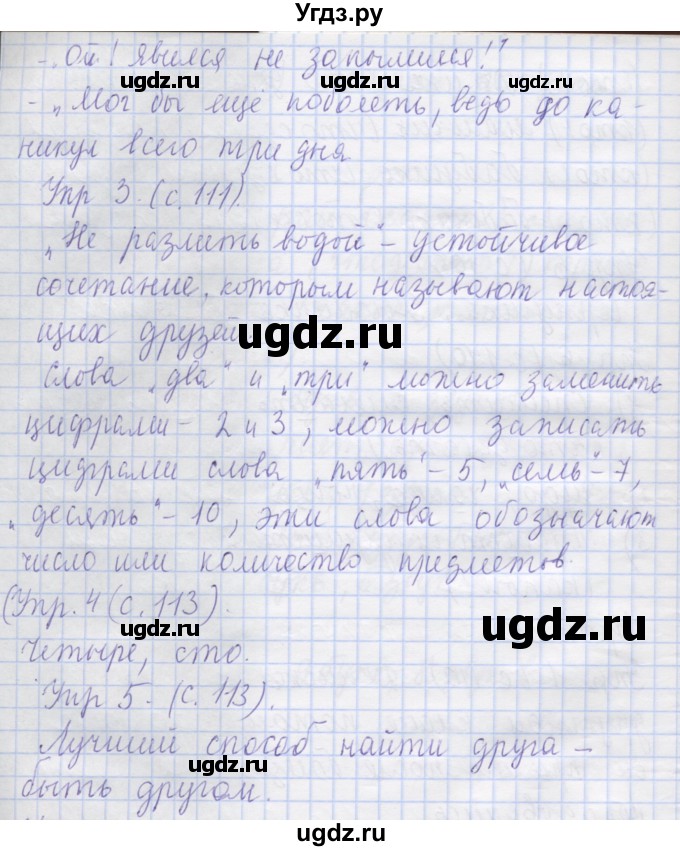 Угдз.ру
- „Ой! явился не запылился!"
- „Мог бы ещё поболеть, ведь до ка-
никул всего три дня
Упр 3. (с. 111).
„Не разлить водой" - устойчивое
сочетание, которым называют настоя-
щих друзей
Слова „два" и „три" можно заменить
цифрами - 2 и 3, можно записать
цифрами слова „пять" - 5, „семь" - 7,
„десять" - 10, эти слова обозначают
число или количество предметов.
(Упр. 4 (с. 113).
Четыре, сто.
Упр 5. (с. 113).
Лучший способ найти друга -
быть другом.
ugdz.ru
ugdz.ru
ugdz.ru
ugdz.ru
ugdz.ru
ugdz.ru
ugdz.ru
ugdz.ru
ugdz.ru
ugdz.ru